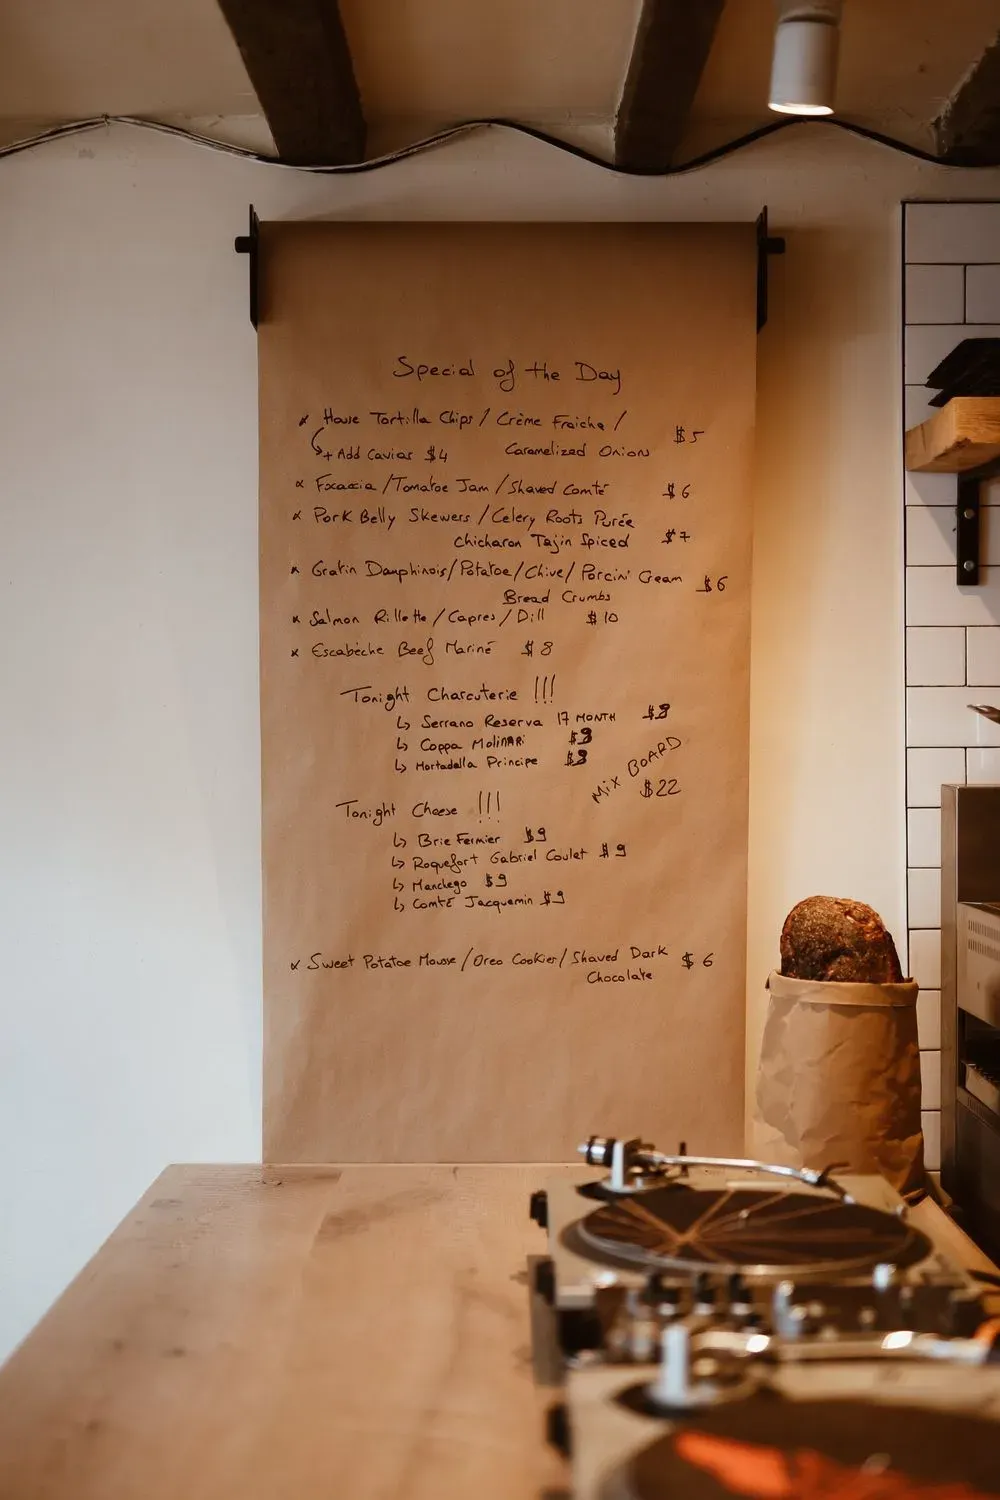 Special of the Day
x House Tortilla Chips / Crème Fraîche / $5
+ Add Caviar $4 Caramelized Onions
x Focaccia / Tomatoe Jam / Shaved Comté $6
x Pork Belly Skewers / Celery Roots Purée
Chicharon Tajin Spiced $7
x Gratin Dauphinois / Potatoe / Chive / Porcini Cream $6
Bread Crumbs
x Salmon Rillette / Capres / Dill $10
x Escabèche Beef Mariné $8
Tonight Charcuterie !!!
↳ Serrano Reserva 17 MONTH $8
↳ Coppa Molinari
↳ Mortadella Principe
MIX BOARD
$22
Tonight Cheese !!!
↳ Brie Fermier $9
↳ Roquefort Gabriel Coulet $9
↳ Manchego $9
↳ Comté Jacquemin $9
x Sweet Potatoe Mousse / Oreo Cookies / Shaved Dark $6
Chocolate